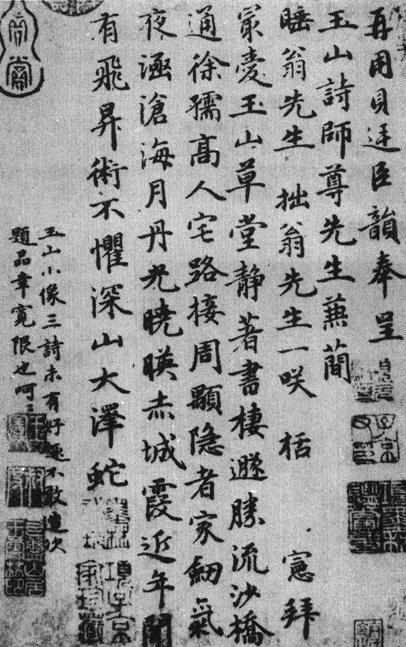 再用貝廷臣韻奉呈
玉山詩師尊先生兼蕳
睡翁先生拙翁先生一咲 栝 憲拜
冣愛玉山草堂靜著書棲遯勝流沙橋
通徐孺高人宅路接周顒隐者家劒氣
夜涵滄海月丹光曉暎赤城霞近年聞
有飛昇術不懼深山大澤蛇
玉山小像三詩未有好 不敢造次
題品幸寛限也呵〻